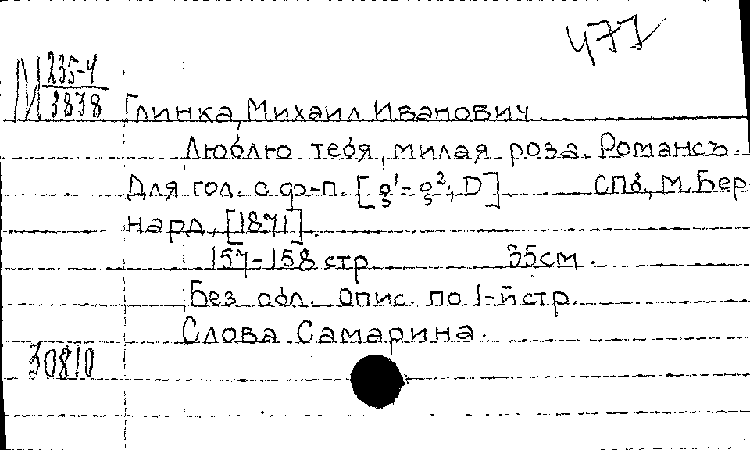 477
М 235-4
3838
Глинка, Михаил Иванович.
Люблю тебя, милая роза. Романсъ.
Для гол. с ф-п. [g¹-g², D] СПб, М. Бер
нард, [1871].
157-158 стр. 35см.
Без обл. Опис. по 1-й стр.
Слова Самарина.
30810